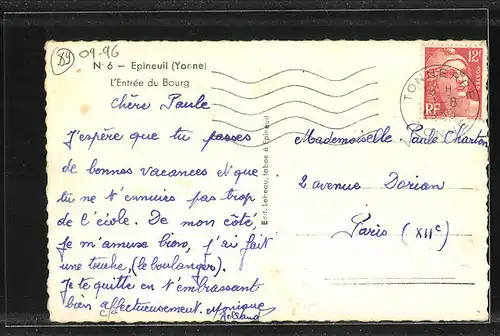 89
09-96
N° 6 - Epineuil (Yonne)
L'Entrée du Bourg
12F
POSTES
RF
TONNERRE
YONNE
Chère Paule
J'espère que tu passes
de bonnes vacances et que
tu ne t'ennuies pas trop
de l'école. De mon côté,
je m'amuse bien, j'ai fait
une touche, (le boulanger).
Je te quitte en t'embrassant
bien affectueusement. Monique
Edit. Lebeau, tabac à Epineuil
Mademoiselle Paule Charton
2 avenue Dorian
Paris (XIIe)